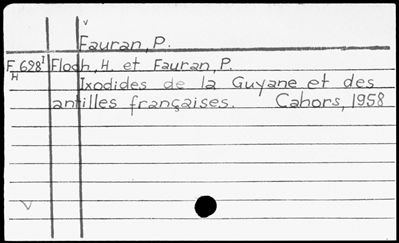 v
Fauran, P.
F 698 I Floch, H. et Fauran, P.
H
Ixodides de la Guyane et des
antilles françaises. Cahors, 1958
V